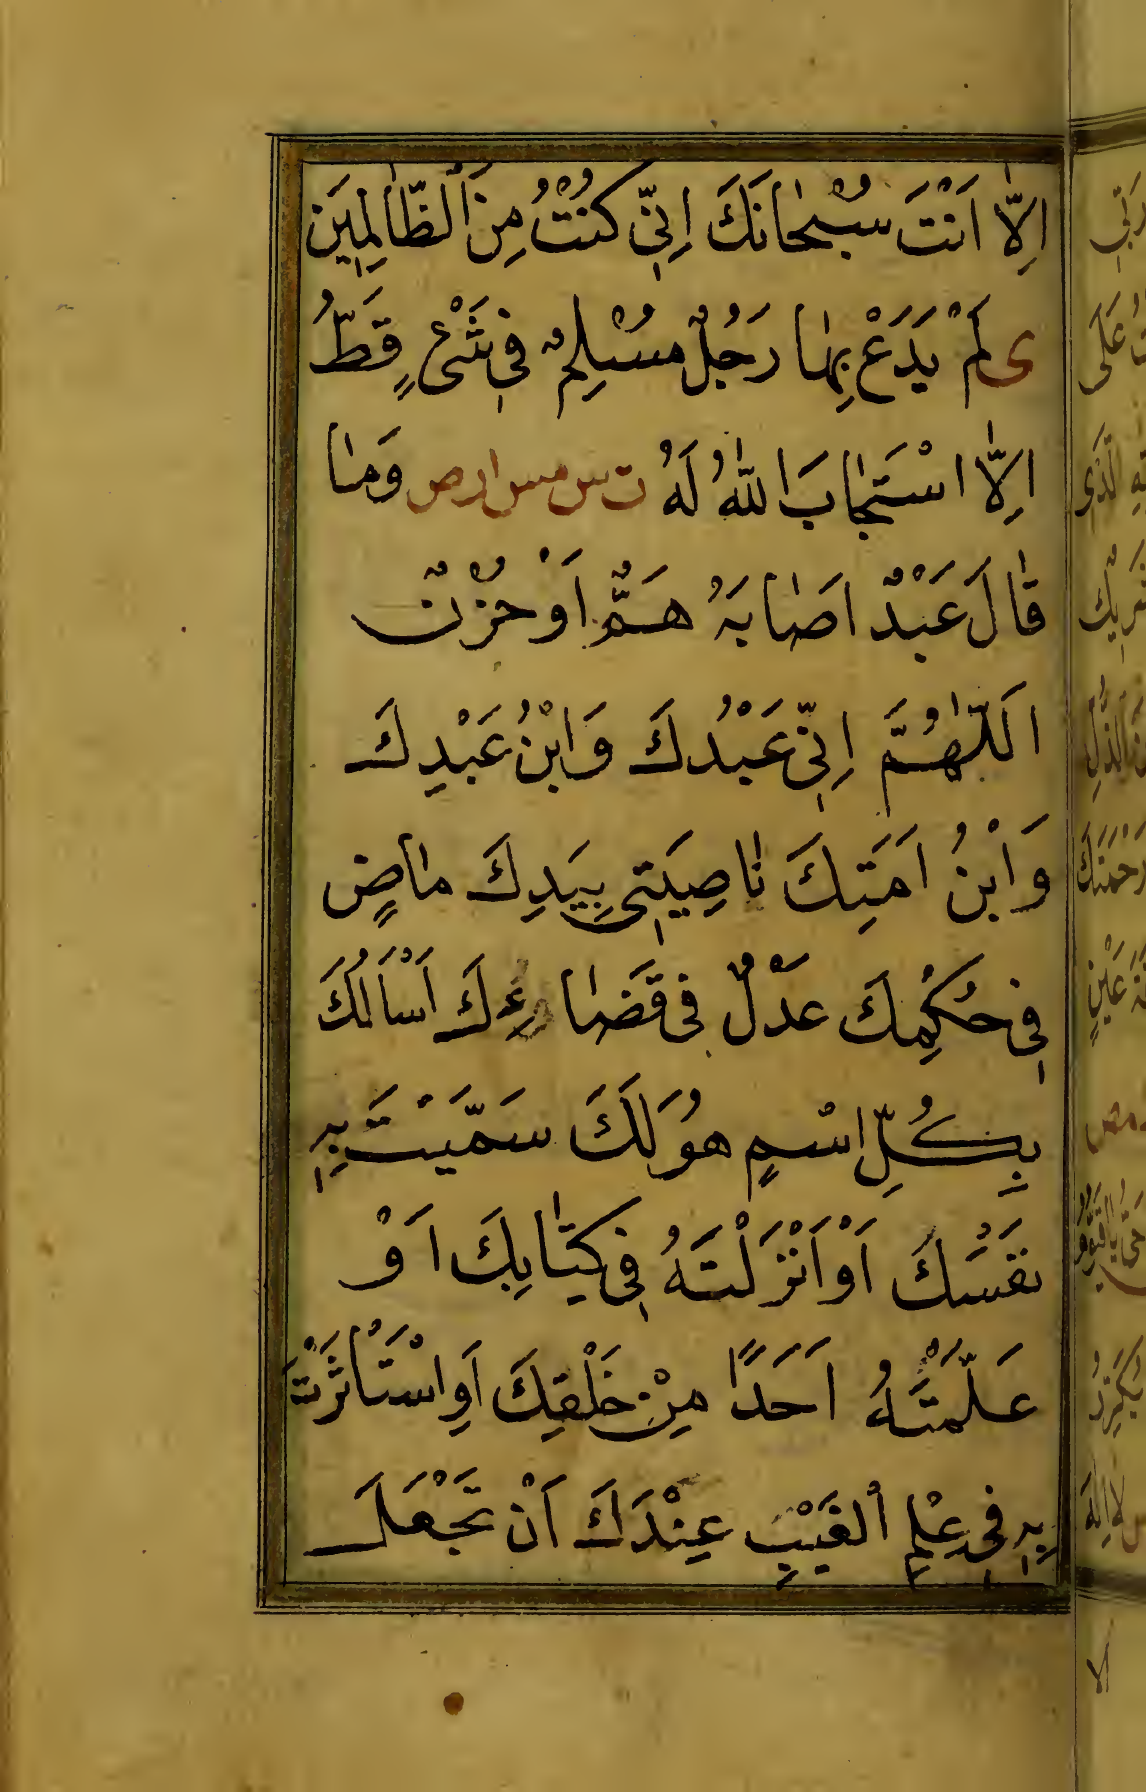 اِلَّا اَنْتَ سُبْحَانَكَ اِنِّي كُنْتُ مِنَ الظَّالِمِينَ
ى لَمْ يَدَعْ بِهَا رَجُلٌ مُسْلِمٌ فِي شَيْءٍ قَطُّ
اِلَّا اسْتَجَابَ اللّٰهُ لَهُ ت س مس ا ر ص وَمَا
قَالَ عَبْدٌ اصَابَهُ هَمٌّ اَوْ حُزْنٌ
اَللّٰهُمَّ اِنِّي عَبْدُكَ وَابْنُ عَبْدِكَ
وَابْنُ اَمَتِكَ نَاصِيَتِي بِيَدِكَ مَاضٍ
فِي حُكْمِكَ عَدْلٌ فِي قَضَاءِكَ اَسْاَلُكَ
بِكُلِّ اسْمٍ هُوَ لَكَ سَمَّيْتَ بِهِ
نَفْسَكَ اَوْ اَنْزَلْتَهُ فِي كِتَابِكَ اَوْ
عَلَّمْتَهُ اَحَدًا مِنْ خَلْقِكَ اَوِ اسْتَاْثَرْتَ
بِهِ فِي عِلْمِ الْغَيْبِ عِنْدَكَ اَنْ تَجْعَلَ